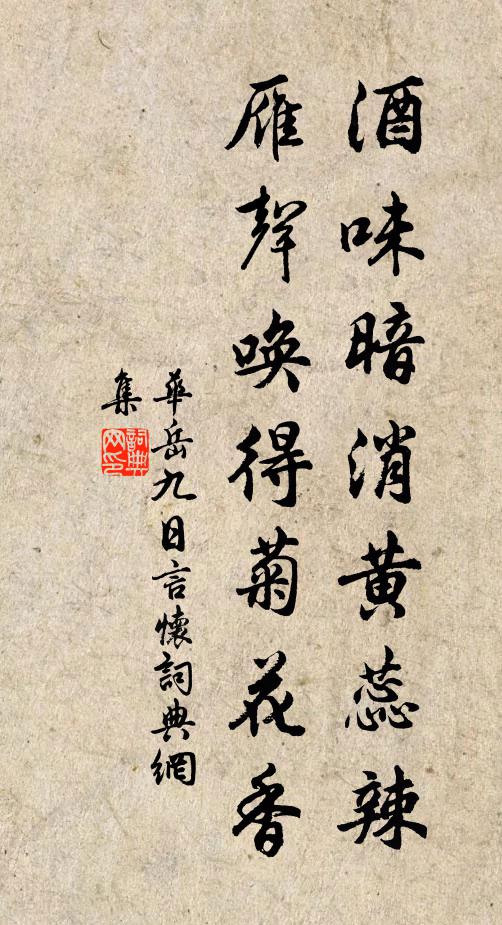 酒味暗消黄蕊辣
雁聲喚得菊花香
華岳九日言懷詞典網
集
詞典
网印